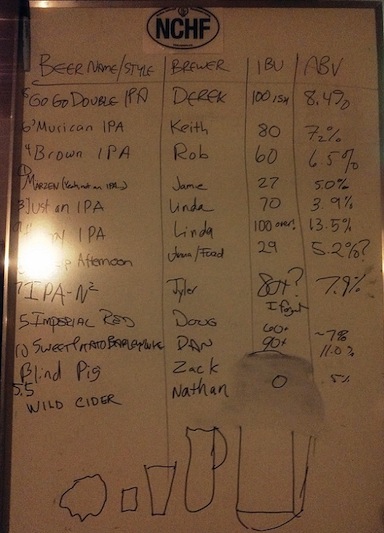 NCHF
BEER NAME/STYLE BREWER IBU ABV
GO GO DOUBLE IPA DEREK 100 ish 8.4%
6 'Murican IPA Keith 80 7.2%
4 Brown IPA Rob 60 6.5%
MARZEN Jamie 27 5.0%
3 Just an IPA Linda 70 3.9%
IPA Linda 100 over! 13.5%
Afternoon /Todd 29 5.2%?
7 IPA-N² Tyler 80+? 7.9%
I forgot
5 IMPERIAL RED DOUG 60+ ~7%
10 SWEET POTATO BARLEYWINE DAN 90+ 11.0%
Blind Pig Zack
5.5 WILD CIDER Nathan 0 5%